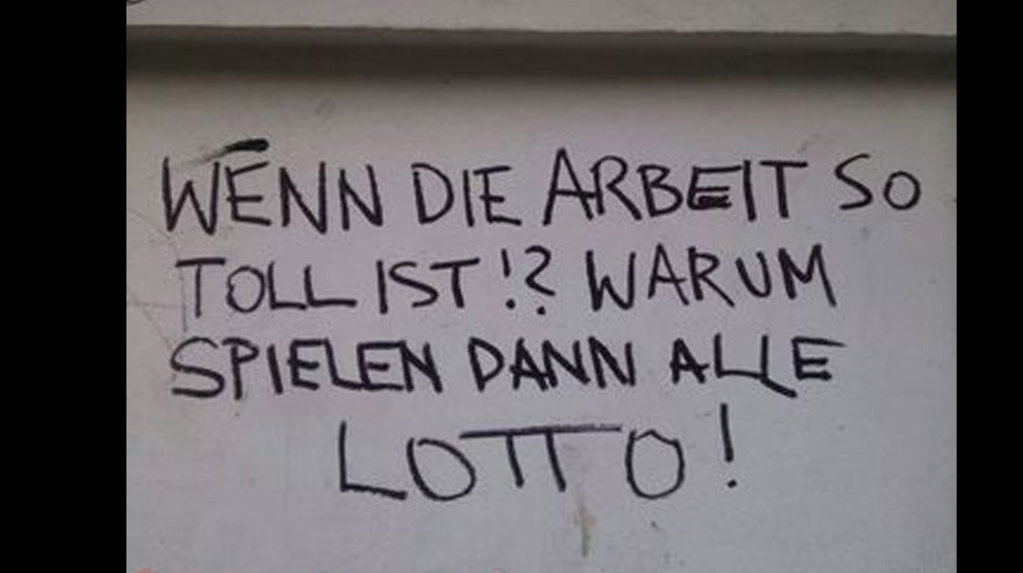 WENN DIE ARBEIT SO
TOLL IST!? WARUM
SPIELEN DANN ALLE
LOTTO!